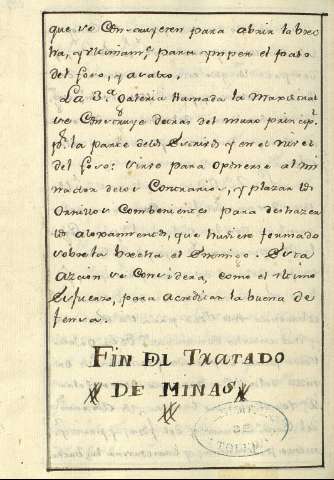 que se Construyeren para abrir la brec
ha, y ultimam.te para romper el paso
del foso, y
La 3.a Galeria llamada la Magistral
se Construye detras del muro princip.l
p.r la parte del y en el nivel
del foso: sirve para oponerse al mi
nador delos Contrarios, y plazar los
Ornillos Combenientes para deshazer
los aloxamientos, que huviere formado
sobre la brecha el Enemigo. Esta
Azcion se Considera, como el ultimo
Esfuerzo, para acreditar la buena de
fensa.
FIN DEL TRATADO
DE MINAS
TOLEDO